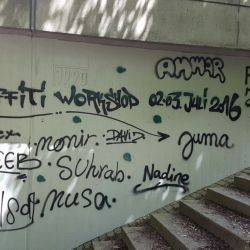 1990
AMMAR
FFITI WORKSHOP 02-03. JULI 2016
monir. DAVID
Juma
Suhrab. Nadine
musa.